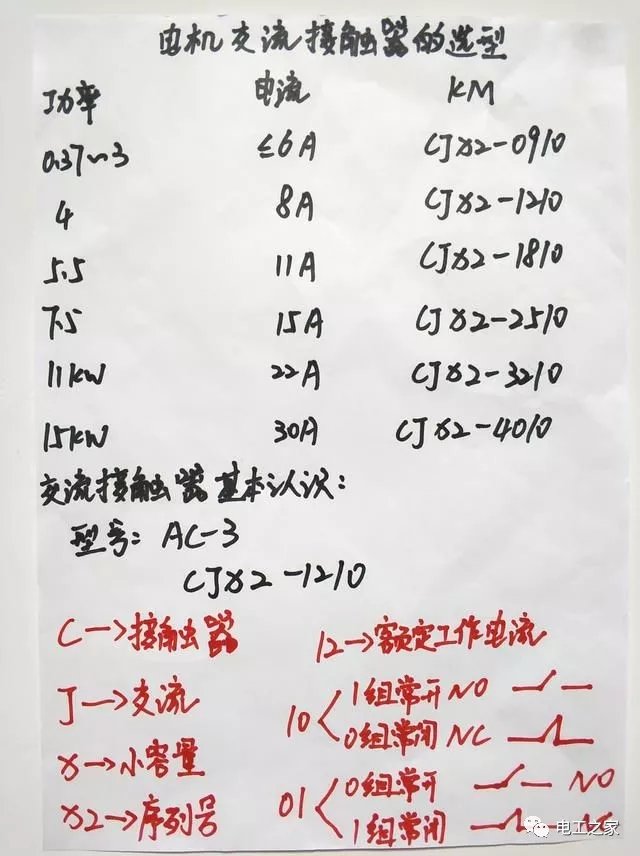 电机交流接触器的选型
功率 电流 KM
0.37~3 ≤6A CJX2-0910
4 8A CJX2-1210
5.5 11A CJX2-1810
7.5 15A CJX2-2510
11KW 22A CJX2-3210
15KW 30A CJX2-4010
交流接触器基本认识:
型号: AC-3
CJX2-1210
C→接触器
J→交流
X→小容量
X2→序列号
12→额定工作电流
10<1组常开NO
0组常闭NC
01<0组常开 NO
1组常闭 NC
电工之家